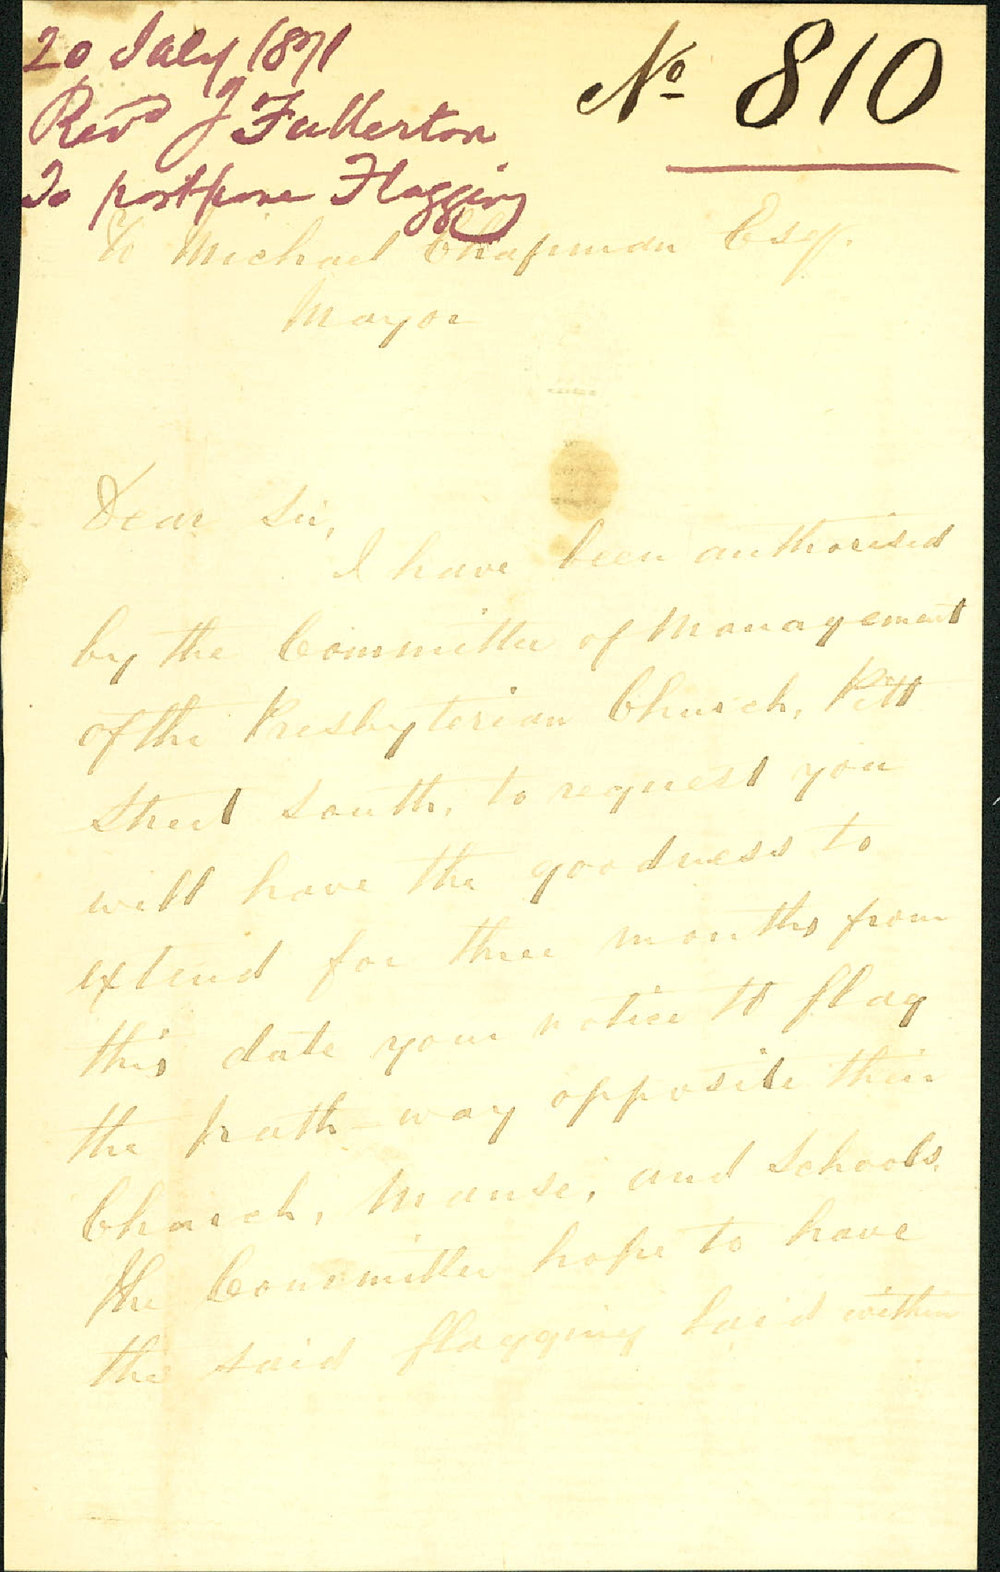 20 July 1871
Revd J Fullerton
To postpone Flagging
No 810
To Michael Chapman Esq.
Mayor
Dear Sir,
I have been authorised
by the Committee of Management
of the Presbyterian Church, Pitt
Street South, to request you
will have the goodness to
extend for three months from
this date your notice to flag
the path-way opposite their
Church, Manse, and Schools.
The Committee hope to have
the said flagging laid within